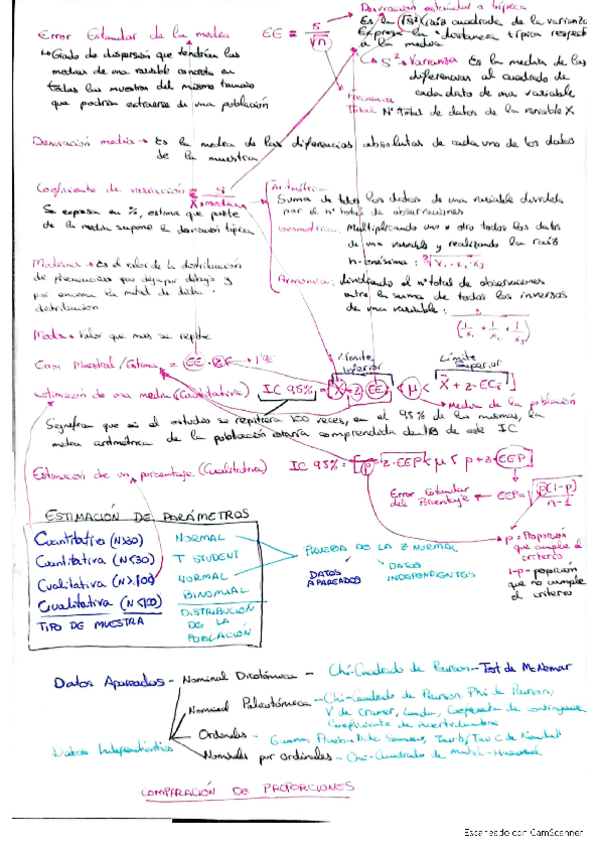 Desviación estándar o típica
Es la (√S²) raíz cuadrada de la varianza
Expresa la "distancia típica respecto
a la media
Error Estandar de la media EE = s/√n
↳ Grado de dispersión que tendrían las
medias de una variable concreta en
todas las muestras del mismo tamaño
que podrían extraerse de una población
S² → Varianza Es la media de las
diferencias al cuadrado de
cada dato de una variable
Frecuencia
Total Nº Total de datos de la variable X
Desviación media → Es la media de las diferencias absolutas de cada uno de los datos
de la muestra
Coeficiente de variación = s/X → media
Se expresa en %, estima que parte
de la media supone la desviación típica
Aritmética
Suma de todos los datos de una variable dividida
por el nº total de observaciones
Geométrica: Multiplicando uno a otro todos los datos
de una variable y realizando la raíz
n-enésima: ³√x₁ · x₂ · x₃
Mediana → Es el valor de la distribución
de frecuencias que deja por debajo y
por encima la mitad de datos
distribución
Armónica: dividiendo el nº total de observaciones
entre la suma de todos los inversos
de una variable:
(1/x₁ + 1/x₂ + 1/x₃)
Moda → Valor que mas se repite
Límite
Inferior
Límite
Superior
Error Muestral / Estima =
Estimación de una media (Cualitativa) IC 95% = [X̄ - z · EE < μ < X̄ + z · EE]
→ Media de la población
Significa que si el estudio se repitiera 100 veces, en el 95% de las mismas, la
media aritmética de la población estaría comprendida dentro de este IC
Estimacion de un porcentaje (Cualitativa) IC 95% = [p - z · EEP < μ < p + z · EEP]
Error Estandar
del Porcentaje ← EEP = √p(1-p)/n-1
ESTIMACIÓN DE PARÁMETROS
Cuantitativa (N≥30) NORMAL
Cuantitativa (N<30) T STUDENT
Cualitativa (N≥100) NORMAL
Cualitativa (N<100) BINOMIAL
TIPO DE MUESTRA DISTRIBUCIÓN
DE LA
POBLACIÓN
PRUEBA DE LA Z NORMAL
DATOS
APAREADOS
DATOS
INDEPENDIENTES
p = Proporción
que cumple el
criterio
1-p = proporción
que no cumple
el criterio
Datos Apareados - Nominal Dicotómica - Chi-Cuadrado de Pearson - Test de McNemar
Nominal Politómica - Chi-Cuadrado de Pearson, Phi de Pearson,
V de Cramer, Lambda, Coeficiente de contingencia,
Coeficiente de incertidumbre
Ordinales - Gamma, Tau b/Tau C de Kendall
Datos Independientes
Nominales por ordinales - Chi-Cuadrado de Mantel-Haenszel
COMPARACIÓN DE PROPORCIONES
Escaneado con CamScanner